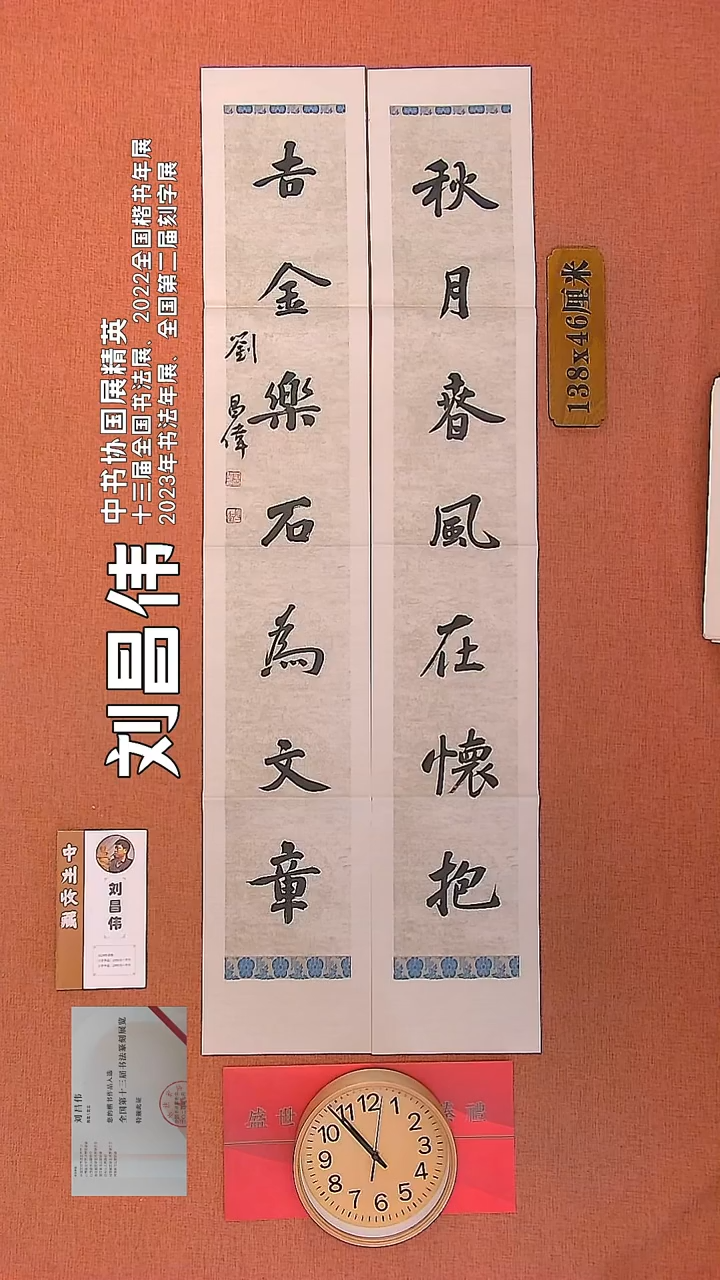 秋月春風在懷抱
吉金樂石為文章
劉昌偉
138x46厘米
中书协国展精英
十三届全国书法展、2022全国楷书年展
2023年书法年展、全国第二届刻字展
刘昌伟
刘昌伟
刘昌伟
您的楷书作品入选
全国第十三届书法篆刻展览
特颁此证
12
1
2
3
4
5
6
7
8
9
10
11